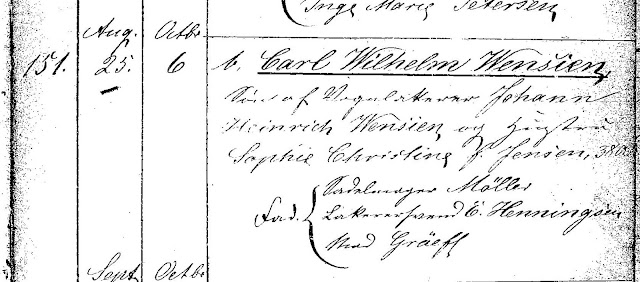 Inge Marie Petersen
Aug. Octbr
151. 25. 6 b. Carl Wilhelm Wensien,
Søn af Vognlakerer Johann
Heinrich Wensien og Hustru
Sophie Christine f. Jensen, 38
Fad. Sadelmager Möller
Lakerersvend E. Henningsen
Mad Gräeff
Sept Octbr